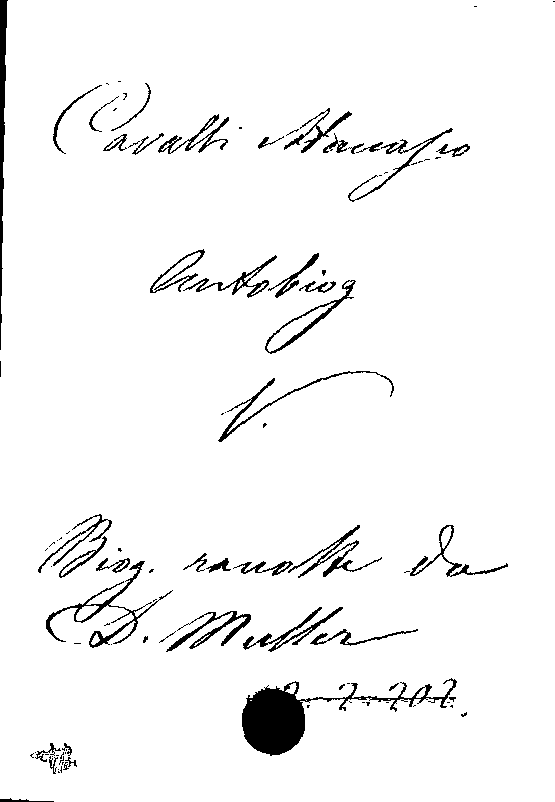 Cavalli Atanasio
Autobiog
V.
Biog. raccolte da
D. Muller
2. 2. 202.